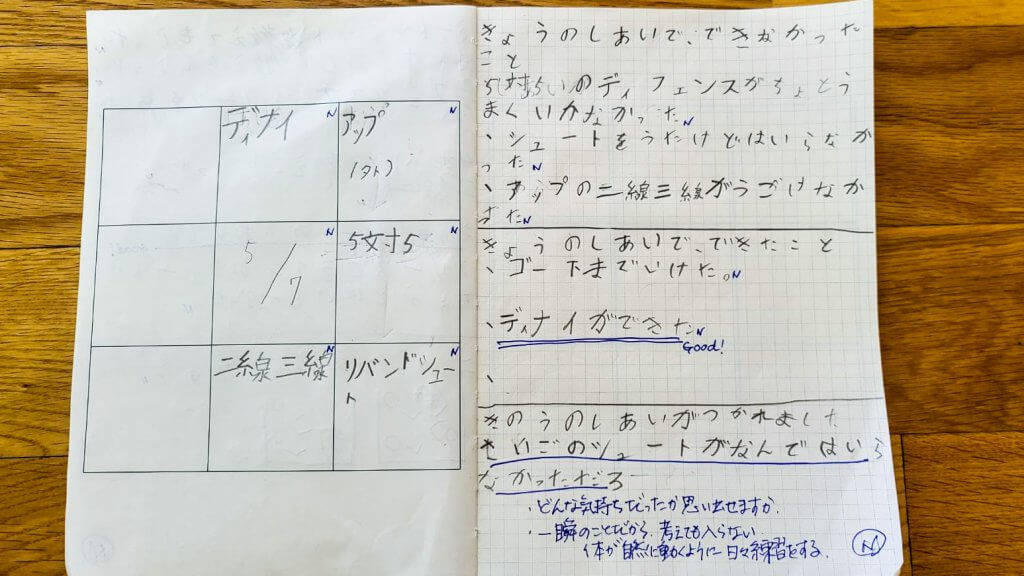 ディナイ N
アップ N
(タト)
5/7 N
5文寸5 N
二線三線 N
リバンドシュー N
ト
きょうのしあいで、できなかった
こと
5対5いのディフェンスがちょとう
まくいかなかった N
、シュートをうたけどはいらなか
った N
、アップの二線三線がうごけなか
た N
きょうのしあいで、できたこと
、ゴー下までいけた。N
、ディナイができた N
Good!
、
きのうのしあいがつかれました
さいごのシュートがなんではいら
なかっただろ
・どんな気持ちだったか思い出せますか
・一瞬のことだから、考えても入らない
体が自然に動くように日々練習をする。
N